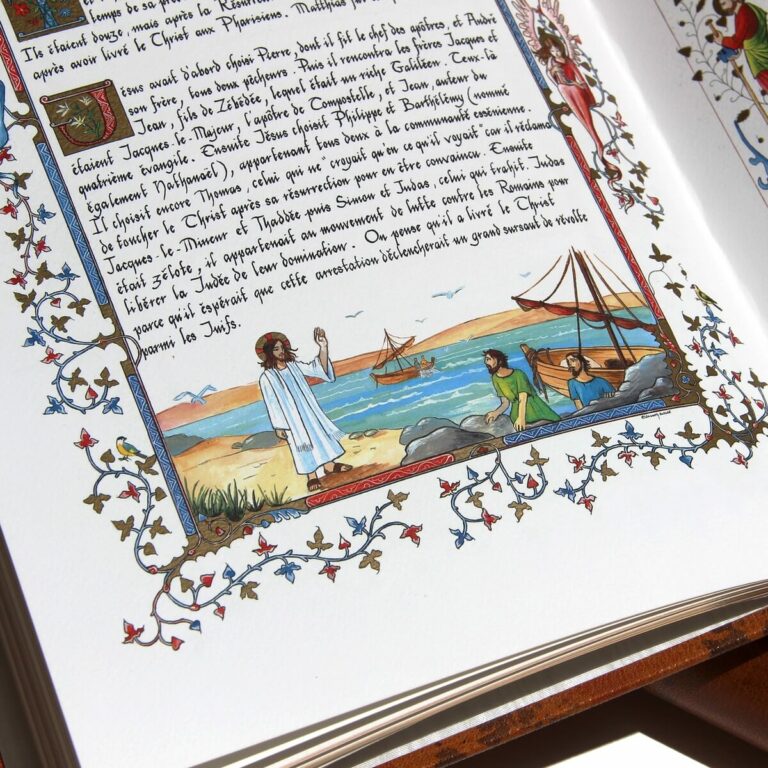 temps de sa pr
Ils étaient douze, mais après la Résurre
après avoir livré le Christ aux Pharisiens. Matthias fut
Jésus avait d'abord choisi Pierre, dont il fit le chef des apôtres, et André
son frère, tous deux pêcheurs. Puis il rencontra les frères Jacques et
Jean, fils de Zébédée, lequel était un riche Galiléen. Ceux-là
étaient Jacques-le-Majeur, l'apôtre de Compostelle, et Jean, auteur du
quatrième évangile. Ensuite Jésus choisit Philippe et Barthélémy (nommé
également Nathanaël), appartenant tous deux à la communauté essénienne.
Il choisit encore Thomas, celui qui ne "croyait qu'en ce qu'il voyait" car il réclama
de toucher le Christ après sa résurrection pour en être convaincu. Ensuite
Jacques-le-Mineur et Thaddée puis Simon et Judas, celui qui trahit. Judas
était zélote, il appartenait au mouvement de lutte contre les Romains pour
libérer la Judée de leur domination. On pense qu'il a livré le Christ
parce qu'il espérait que cette arrestation déclencherait un grand sursaut de révolte
parmi les Juifs.